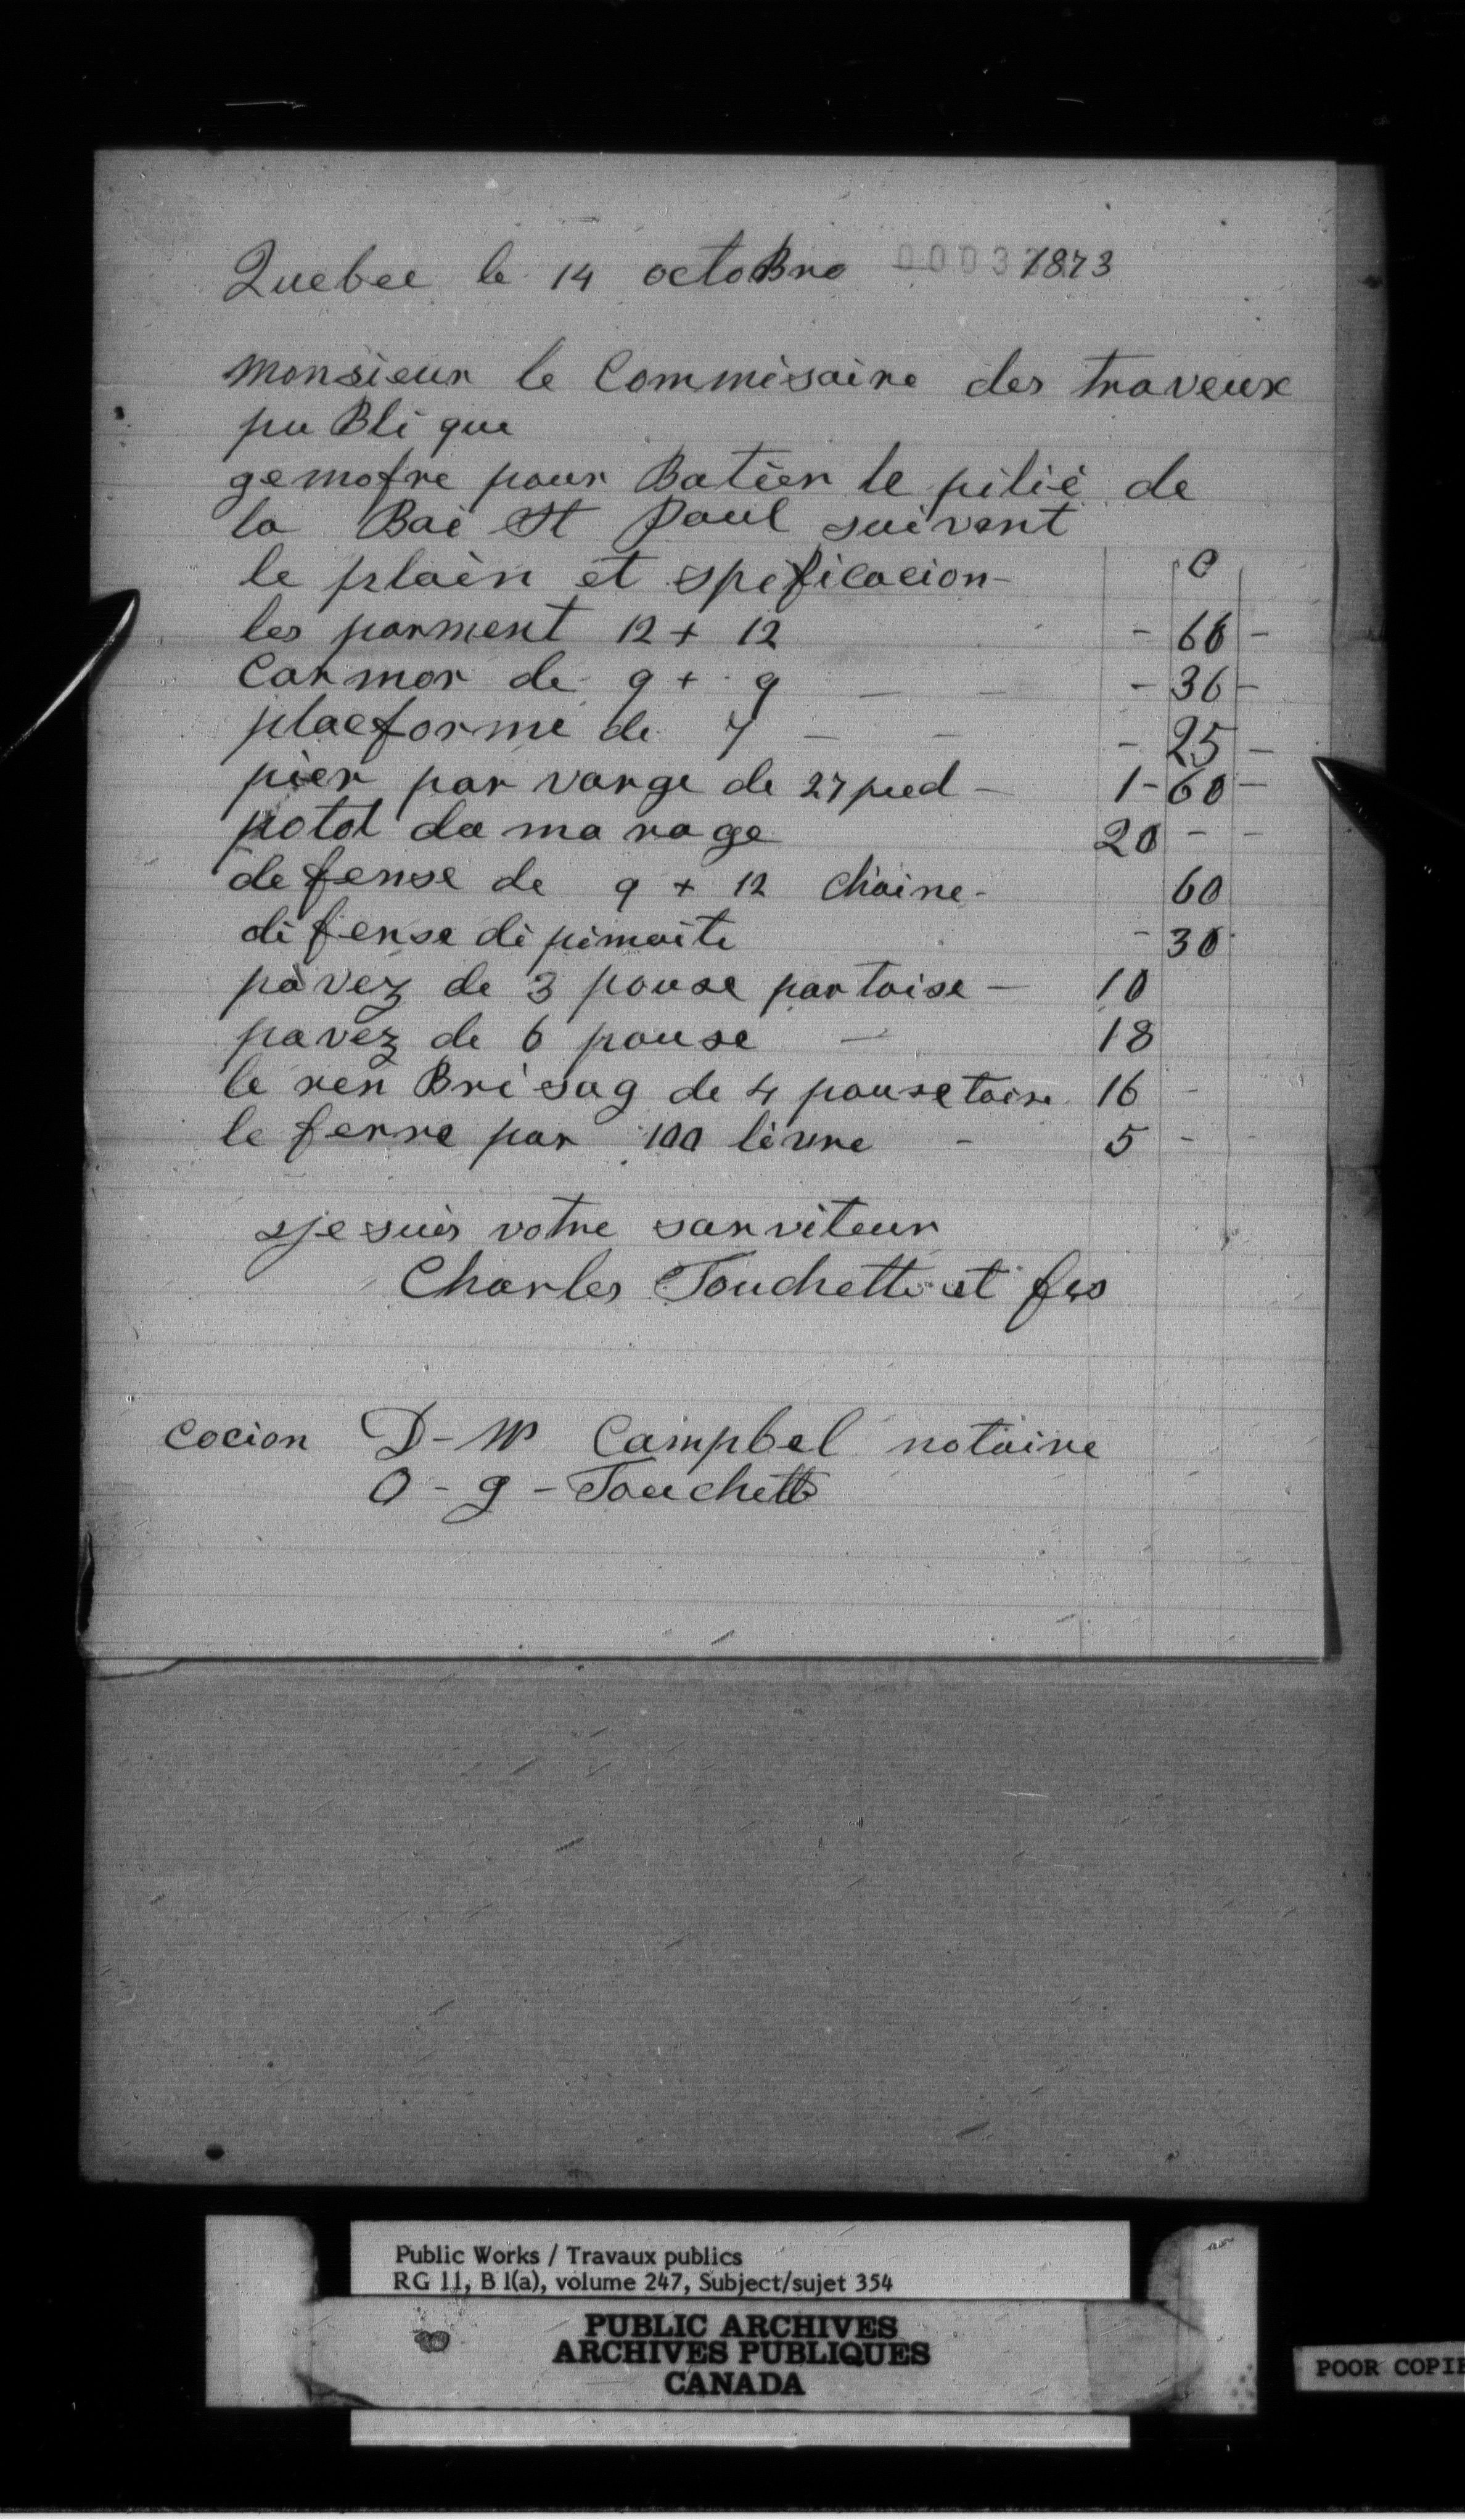 Quebec le 14 octoBre 1873
monsieur le Commisaire des traveux
puBlique
gemofre pour Batier le pilié de
la Baé St Paul suivent
le plain et speficacion -
C
les parment 12 + 12 - 66 -
Carmor de 9 + 9 - - - 36 -
placforme de 7 - - - 25 -
pier par varge de 27 pied - 1 - 60 -
potot da ma rage 20 - -
defense de 9 + 12 chaine - 60
défense dé pimaite - 30
pàvez de 3 pouse par toise - 10
pavez de 6 pouse - 18
le ren Brisag de 4 pouse toise 16 -
le ferre par 100 livre - 5 - -
sje suis votre sarviteur
Charles Touchette et fis
Cocion D - W Campbel notaire
O - g - Touchette
Public Works / Travaux publics
RG 11, B 1(a), volume 247, Subject/sujet 354
PUBLIC ARCHIVES
ARCHIVES PUBLIQUES
CANADA
POOR COPIE